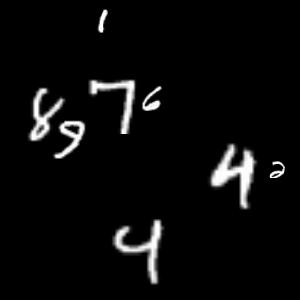 1
8 9 7 6
4 2
4